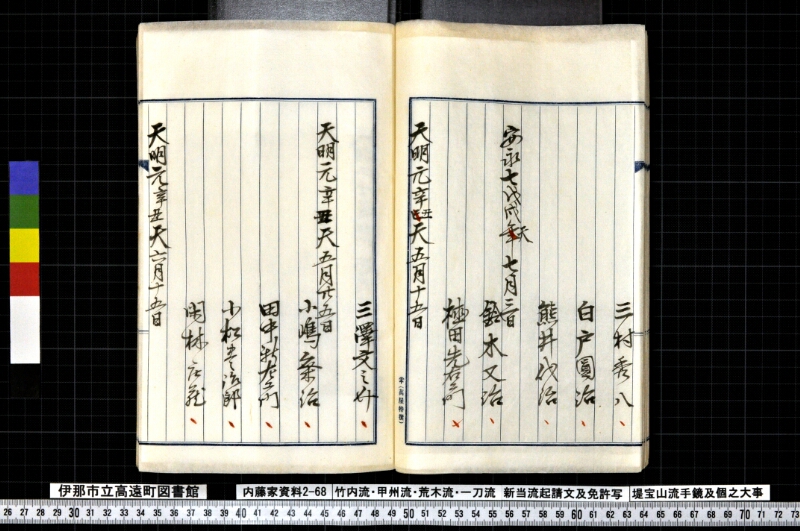 三村秀八
白戸圓治
熊井代治
安永七戊戌天七月三日
鈴木又治
植田先右衛門
天明元辛丑天五月十五日
三澤文之丞
小嶋粂治
天明元辛丑天五月廿五日
田中新左衛門
小松
岡林
天明元辛丑天六月十五日
伊那市立高遠町図書館
内藤家資料2-68
竹内流・甲州流・荒木流・一刀流 新当流起請文及免許写
堤宝山流手鏡及個之大事
26 27 28 29 30 31 32 33 34 35 36 37 38 39 40 41 42 43 44 45 46 47 48 49 50 51 52 53 54 55 56 57 58 59 60 61 62 63 64 65 66 67 68 69 70 71 72 73